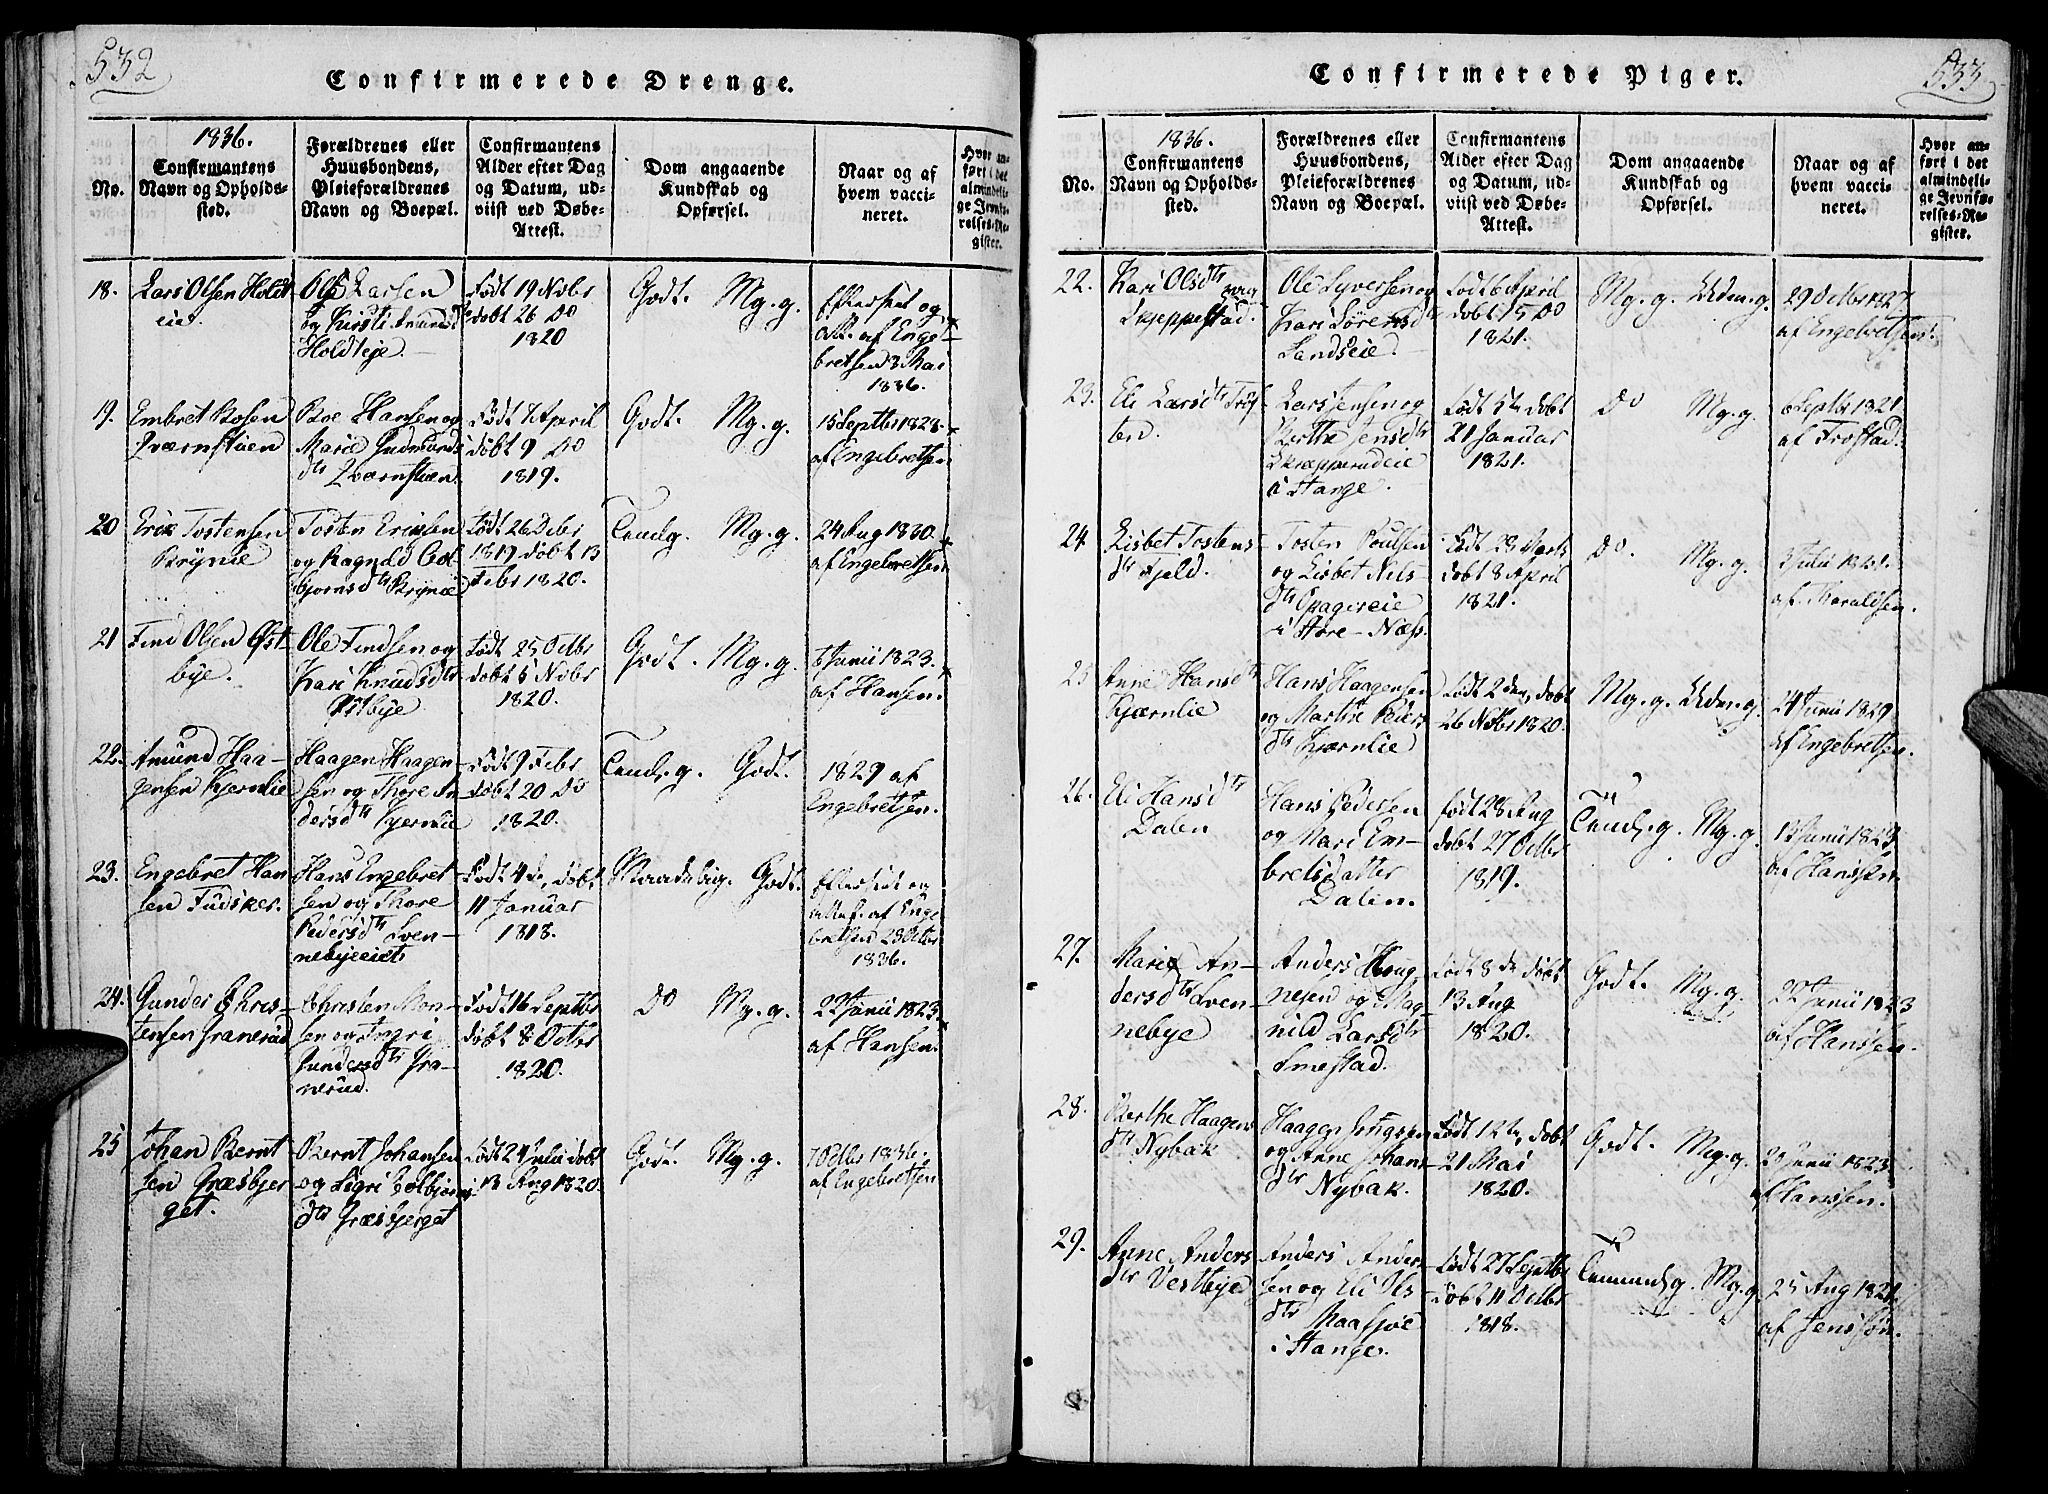 532
Confirmerede Drenge.
1836.
No.
Confirmantens
Navn og Opholds-
sted.
Forældrenes eller
Huusbondens,
Pleieforældrenes
Navn og Boepæl.
Confirmantens
Alder efter Dag
og Datum, ud-
viist ved Døbe-
Attest.
Dom angaaende
Kundskab og
Opførsel.
Naar og af
hvem vacci-
neret.
Hvor an-
ført i det
almindeli-
ge Jevnfø-
relses-Re-
gister.
18.
Lars Olsen Holdt
eie.
Ole Larsen
og Kirsti Amunds
Holdteje.
Født 19 Nobr
døbt 26 Do
1820
Godt. Mg. g.
Efterseet og
Att. af Enge-
bretsen 3 Mai
1836.
19.
Embret Boesen
Qværnstuen
Boe Hansen og
Marie Gudmunds
dtr Qværnstuen.
Født 7 April
døbt 9 Do
1819.
Godt. Mg. g.
15 Septbr 1828.
af Engebretsen
20
Erik Tostensen
Brynie
Tosten Eriksen
og Ragnild Col
bjørnsdtr Brynie
Født 26 Debr
1819 døbt 13
Febr 1820.
Temlg. Mg. g.
24 Aug 1830.
af Engebretsen
21
Find Olsen Øst-
bye.
Ole Findsen og
Kari Knudsdtr
Østbye
Født 25 Octbr
døbt 5 Nobr
1820.
Godt. Mg. g.
6 Junii 1823.
af Hansen.
22.
Amund Haa-
gensen Kjernlie
Haagen Haagen-
sen og Thore An
dersdtr Kjernlie
Født 9 Febr
døbt 20 Do
1820.
Temlg. Godt.
1829 af
Engebretsen.
23.
Engebret Han
sen Fusker.
Hans Engebret
sen og Thore
Pedersdtr Sven-
nebyeeiet
Født 4de, døbt
11 Januar
1818.
Maadelig. Godt.
Efterseet og
Engebretsen 23 Octbr
1836.
24.
Gunder Chris-
tensen Granerud
Christen Mon-
sen og Ingri
Gundersdtr Gra-
nerud.
Født 16 Septbr
døbt 8 Octbr
1820.
Do Mg. g.
22 Junii 1823.
af Hansen.
25
Johan Bernt
sen Græsbjer
get.
Bernt Johansen
og Sigri Colbjørns-
dtr Græsbjerget
Født 24 Julii døbt
13 Aug 1820.
Godt. Mg. g.
7 Octbr 1836.
af Engebretsen
533
Confirmerede Piger.
1836.
No.
Confirmantens
Navn og Opholds-
sted.
Forældrenes eller
Huusbondens,
Pleieforældrenes
Navn og Boepæl.
Confirmantens
Alder efter Dag
og Datum, ud-
viist ved Døbe-
Attest.
Dom angaaende
Kundskab og
Opførsel.
Naar og af
hvem vacci-
neret.
Hvor an-
ført i det
almindeli-
ge Jevnfø-
relses-Re-
gister.
22.
Kari Olsdtr
Skjeppestad.
Ole Syversen og
Kari Sørensdtr
Sandseie.
Født 6 April
døbt 15 Do
1821.
Mg. g. Udm. g.
29 Octbr 1827
af Engebretsen.
23.
Eli Larsdtr Frøs
ten.
Lars Jensen og
Berthe Jensdtr
Skrepperudeie
i Stange.
Født 5te døbt
21 Januar
1821.
Do Mg. g.
6 Septbr 1821
af Frostad.
24
Lisbet Tostens-
dtr Fjeld.
Tosten Poulsen
og Lisbet Nils-
dtr Opagereie
i Store-Næs.
Født 23 Marts
døbt 8 April
1821.
Do. Mg. g.
3 Julii 1821.
af Tharaldsen.
25
Anne Hansdtr
Kjærnlie
Hans Haagensen
og Marthe Peders
dtr Kjærnlie
Født 2den, døbt
26 Nobr 1820.
Mg. g. Udm. g.
24 Junii 1829
af Engebretsen.
26.
Eli Hansdtr
Dalen
Hans Pedersen
og Mari Em-
bretsdatter
Dalen.
Født 28 Aug
døbt 27 Octbr
1819.
Temlg. Mg. g.
13 Junii 1823
af Hanssen.
27.
Marie An-
dersdtr Sven-
nebye
Anders Haug-
nesen og Mag-
nild Larsdtr
Smestad.
Født 8de døbt
13 Aug
1820.
Godt. Mg. g.
22 Junii 1823
af Hanssen.
28.
Berthe Haagens
dtr Nybak
Haagen Jingsen
og Anne Johans
dtr Nybak.
Født 12te, døbt
21 Mai
1820.
Godt. Mg. g.
20 Junii 1823.
af Hanssen.
29.
Anne Anders
dtr Vestbye
Anders Ander-
sen og Eli Ols
dtr Maasjøe
i Stange.
Født 27 Septbr
døbt 11 Octbr
1818.
Temmelig. Mg. g.
25 Aug 1821.
af Jenssøn.